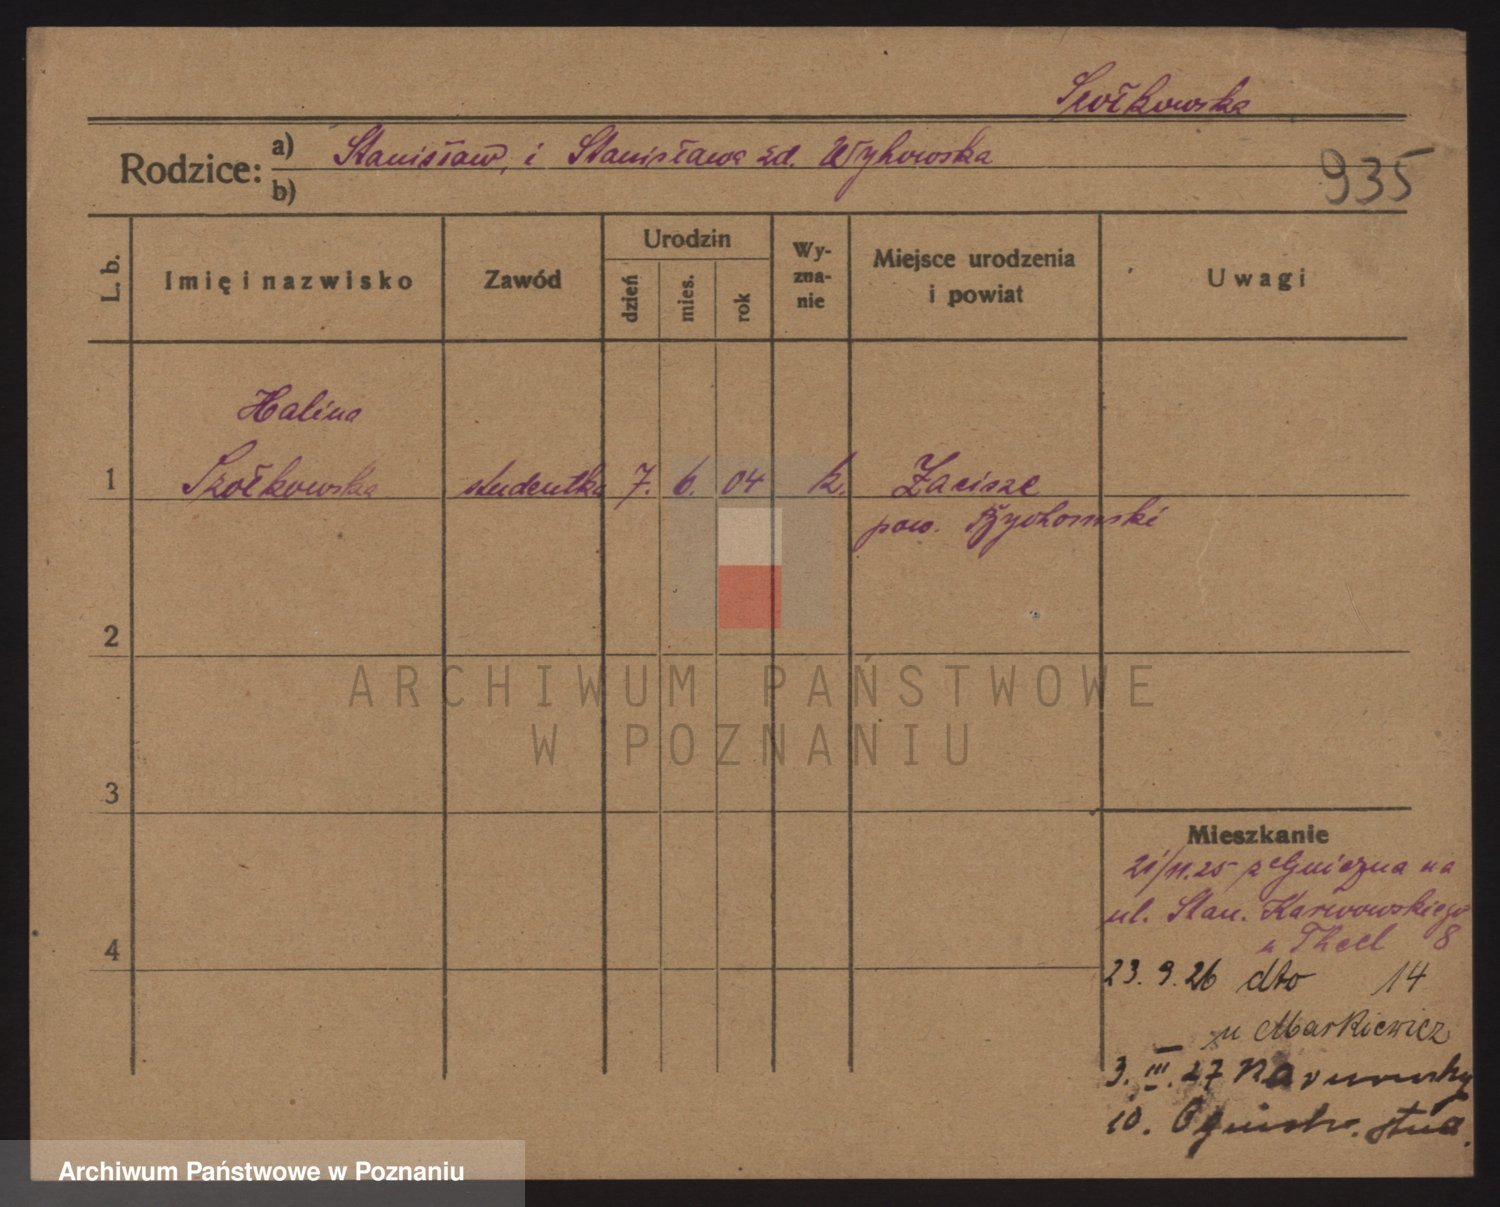 Szołkowska
Rodzice: a) Stanisław, i Stanisława zd. Wyhowska
b)
935
L. b.
Imię i nazwisko
Zawód
Urodzin
dzień
mies.
rok
Wy-
zna-
nie
Miejsce urodzenia
i powiat
Uwagi
Halina
1 Szołkowska studentka 7. 6. 04 k. Zacisze
pow.
2
ARCHIWUM PAŃSTWOWE
W POZNANIU
3
Mieszkanie
21/11.25 z Gniezna na
ul. Stan. Karwowskiego
u 8
4
23. 9. 26 dto 14
u Markiewicz
3. III. 27
10. stud.
Archiwum Państwowe w Poznaniu